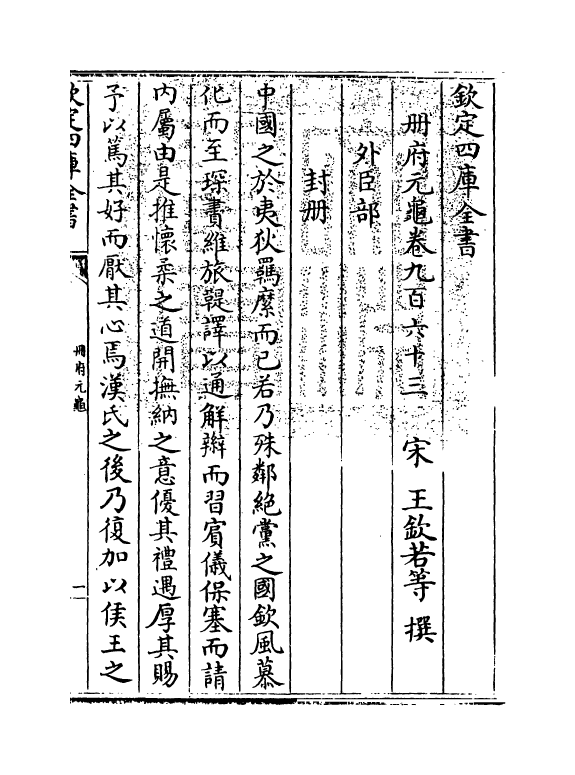 欽定四庫全書
冊府元龜卷九百六十三　宋　王欽若等　撰
外臣部
封冊
中國之於夷狄羈縻而已若乃殊鄰絶黨之國欽風慕
化而至琛賮維旅鞮譯以通解辮而習賔儀保塞而請
内屬由是推懷柔之道開撫納之意優其禮遇厚其賜
予以篤其好而厭其心焉漢氏之後乃復加以侯王之
欽定四庫全書
冊府元龜
一